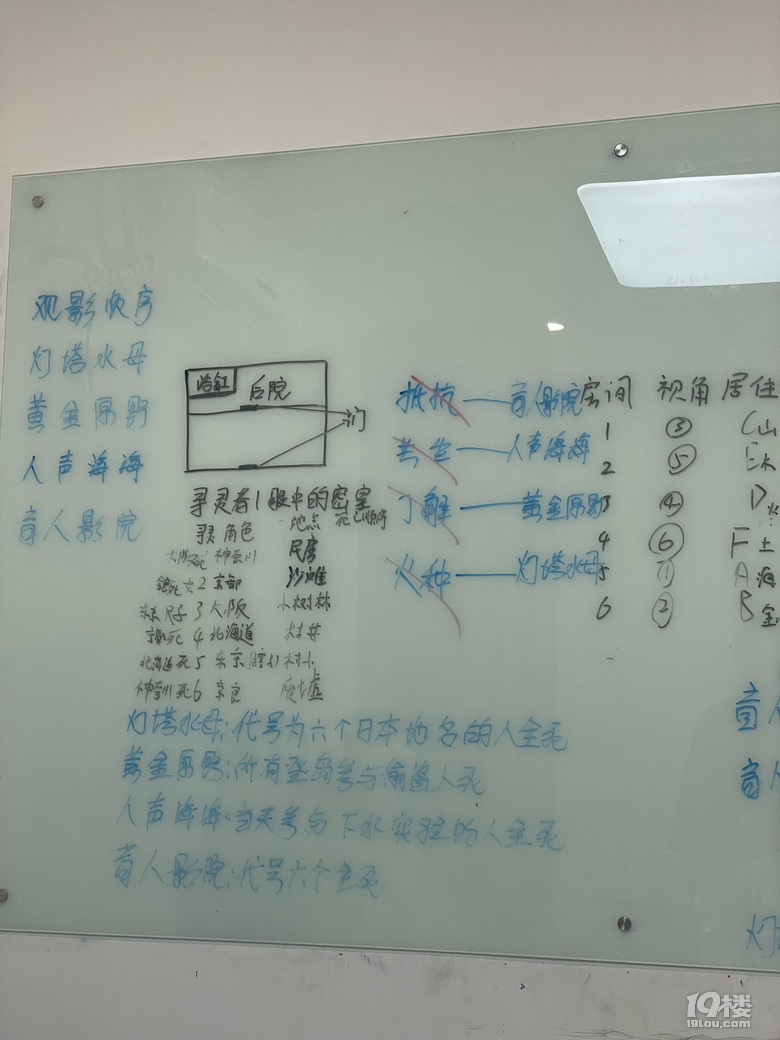 观影顺序
灯塔水母
黄金原野
人声海海
盲人影院
浴缸
后院
门
抵抗——盲人影院
共生——人声海海
了解——黄金原野
火种——灯塔水母
房间 视角 居住
1 ③ C山
2 ⑤ E木
3 ④ D火
4 ⑥ F土
5 ① A海
6 ② B金
寻灵者1眼中的密室
寻灵 角色 地点 死亡顺序
神奈川 民房
2 京都 沙滩
3 大阪 小树林
京都死 4 北海道 村井
北海道死 5 东京 村小
神奈川死 6 奈良 废墟
灯塔水母:代号为六个日本地名的人全死
黄金原野:所有登岛参与偷酱人死
人声海海:当天参与下水实验的人全死
盲人影院:代号六个全死
盲人
盲人
灯
19楼
19lou.com